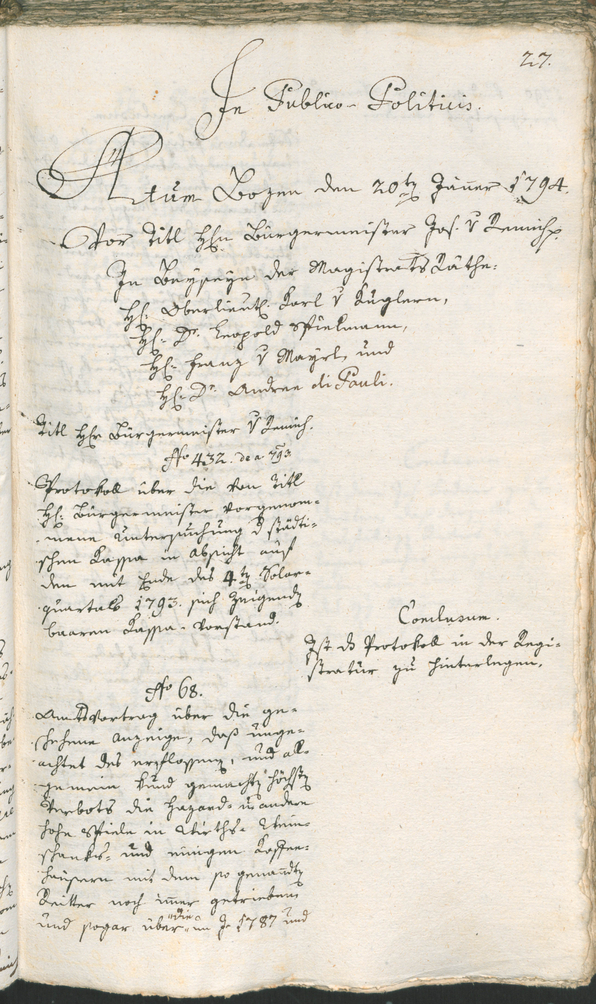 27.
In Publico-Politicis.
Actum Bozen den 20ten Jäner 1794.
Vor Titl Hhn. Bürgermeister Jos. v Remich
In Beyseyn der Magistrats Räthe:
Hh. Oberlieut. Karl v Küglern,
Hh. Dr. Leopold Spielmann,
Hh. Franz v Mayrl, und
Hh. Dr. Andree di Pauli.
Titl Hhr Bürgermeister v Remich.
No 432. de a 793
Protokoll über die von Titl
Hh. Bürgermeister vorgenom-
mene Untersuchung d städti-
schen Kassa in Absicht auf
den mit Ende des 4ten Solar-
quartals 1793. sich zeigenden
baaren Kassa-Vorstand.
Conclusum.
Ist ds Protokoll in der Regi-
stratur zu hinterlegen.
No 68.
Amtsvortrag über die ge-
schehene Anzeige, daß unge-
achtet des erflossenen, und all-
gemein kund gemachten höchsten
Verbots die Hazard- u andere
hohe Spiele in Wirths- Wein-
schanks- und einigen Kaffee-
häusern mit dem so genannten
Reitter noch imer getrieben
und sogar über die im J. 1787 und